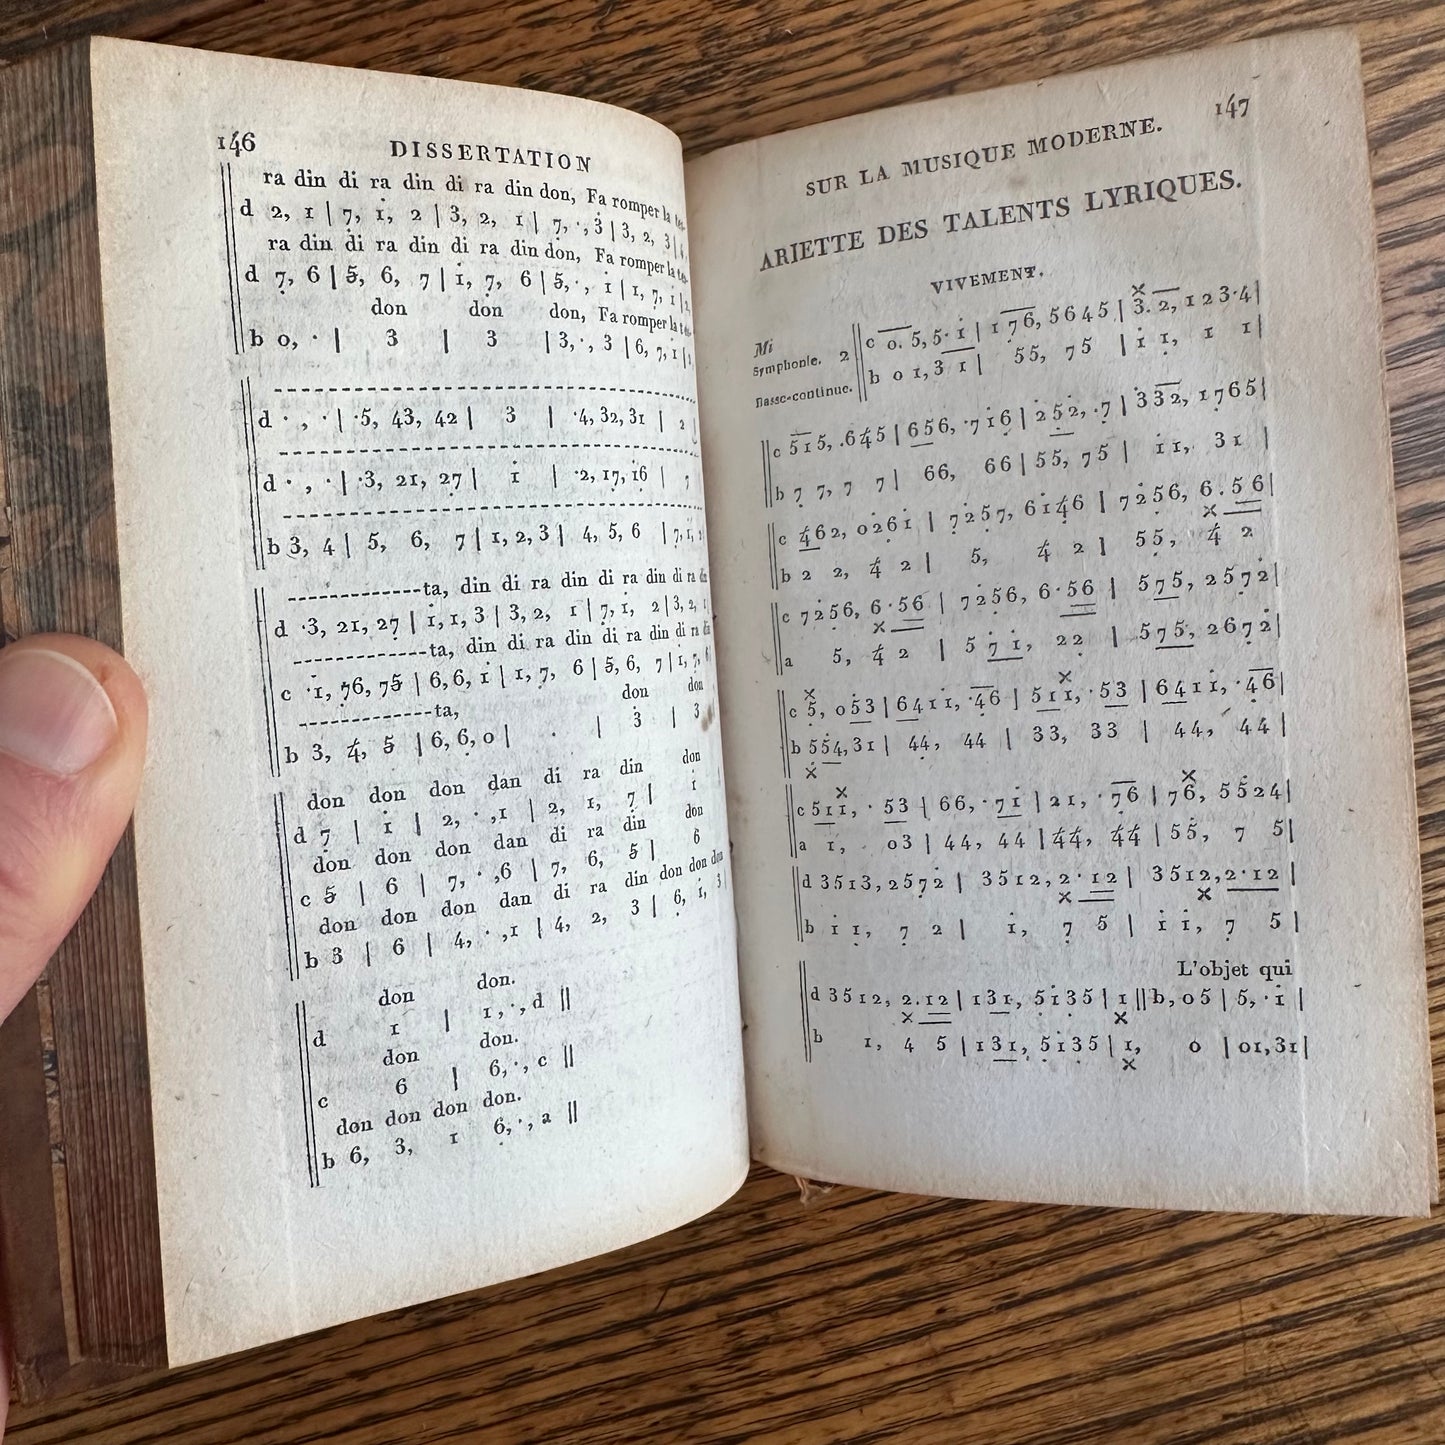 146 DISSERTATION
ra din di ra din di ra din don, Fa romper la tes-
d 2, 1 | 7, i, 2 | 3, 2, 1 | 7, ·, 3 | 3, 2, 3 |
ra din di ra din di ra din don, Fa romper la tes-
d 7, 6 | 5, 6, 7 | 1, 7, 6 | 5, ·, 1 | 1, 7, 1 | 2,
don don don, Fa romper la tes-
b 0, · | 3 | 3 | 3, ·, 3 | 6, 7, 1 |
d · , · | ·5, 43, 42 | 3 | ·4, 32, 31 | 2
d · , · | ·3, 21, 27 | 1 | ·2, 17, 16 | 7
b 3, 4 | 5, 6, 7 | 1, 2, 3 | 4, 5, 6 | 7, 1,
-------------ta, din di ra din di ra din di ra din
d ·3, 21, 27 | 1, 1, 3 | 3, 2, 1 | 7, 1, 2 | 3, 2, 1
-------------ta, din di ra din di ra din di ra din
c ·1, 76, 75 | 6, 6, 1 | 1, 7, 6 | 5, 6, 7 | 1, 7, 6
-------------ta, don don
b 3, 4, 5 | 6, 6, 0 | . | 3 | 3
don don don dan di ra din don
d 7 | 1 | 2, · ,1 | 2, 1, 7 | 1
don don don dan di ra din don
c 5 | 6 | 7, · ,6 | 7, 6, 5 | 6
don don don dan di ra din don don don
b 3 | 6 | 4, · ,1 | 4, 2, 3 | 6, 1, 3
don don.
d 1 | 1, ·, d ||
don don.
c 6 | 6, ·, c ||
don don don don.
b 6, 3, 1 6, ·, a ||
SUR LA MUSIQUE MODERNE. 147
ARIETTE DES TALENTS LYRIQUES.
VIVEMENT.
Mi
Symphonie. 2 c 0. 5, 5· 1 | 1 76, 5645 | 3. 2, 1 2 3·4 |
Basse-continue. b 0 1, 3 1 | 55, 75 | 1 1, 1 1
c 515, .645 | 656, ·716 | 252, ·7 | 332, 1765 |
b 7 7, 7 7 | 66, 66 | 55, 75 | 11, 31 |
c 462, 0261 | 7257, 6146 | 7256, 6.56 |
b 2 2, 4 2 | 5, 4 2 | 55, 4 2
c 7256, 6·56 | 7256, 6·56 | 575, 2572 |
a 5, 4 2 | 5 71, 22 | 575, 2672 |
c 5, 053 | 6411, ·46 | 511, ·53 | 6411, ·46 |
b 554, 31 | 44, 44 | 33, 33 | 44, 44 |
c 511, · 53 | 66, ·71 | 21, ·76 | 76, 5524 |
a 1, 03 | 44, 44 | 44, 44 | 55, 7 5 |
d 3513, 2572 | 3512, 2·12 | 3512, 2·12 |
b 1 1, 7 2 | 1, 7 5 | 1 1, 7 5 |
L'objet qui
d 3512, 2.12 | 131, 5135 | 1 || b, 05 | 5, ·1 |
b 1, 4 5 | 131, 5135 | 1, 0 | 01, 31 |